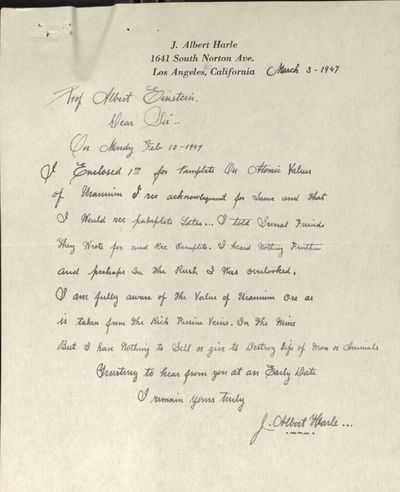 J. Albert Harle
1641 South Norton Ave.
Los Angeles, California March 3 - 1947
Prof Albert Einstein.
Dear Sir..
On Mondy Feb 10-1947
I Enclosed 1.00 for Pamplete On Atomic Values
of Uranium I rec acknowlegment for Same and that
I Would rec pamplete Later... I told Several Friends
They Wrote for and Rec Pamplete. I heard Nothing Further
and perhaps In the Rush I Was overlooked.
I am fully aware of the Value of Uranium Ore as
is taken from the Rich Veins. In the Mine
But I have Nothing to Sell or give to Destroy life of Man or Animals
Trusting to hear from you at an Early Date
I remain yours truly
J. Albert Harle...